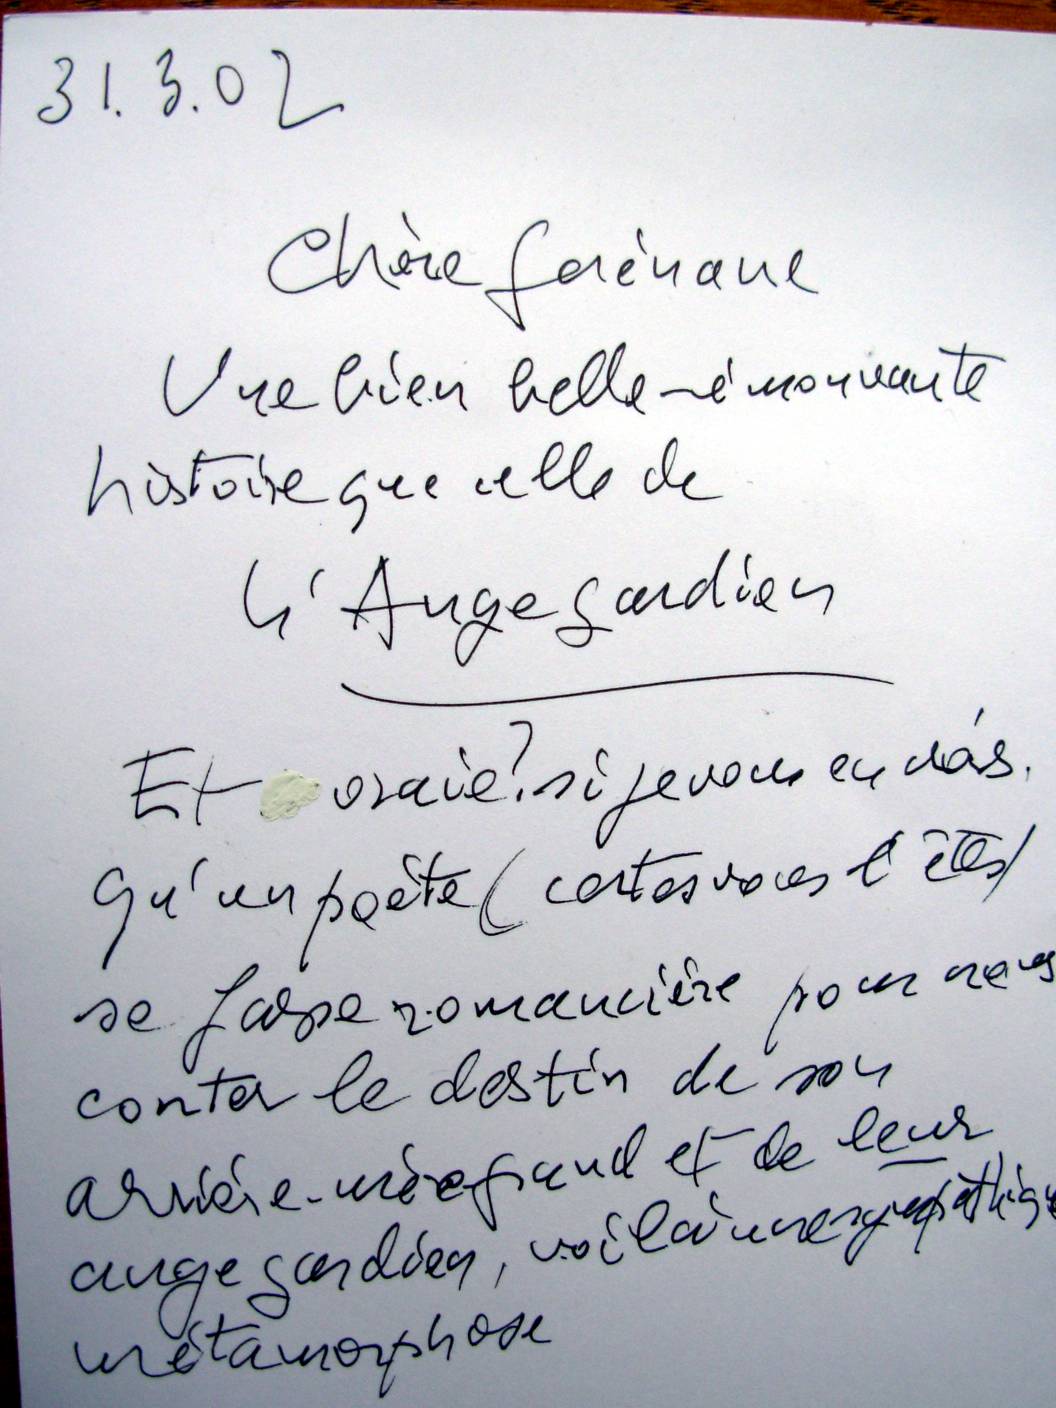 31.3.02
Chère
Une bien belle - émouvante
histoire que celle de
L'Ange gardien
Et vraie? si je vous en crois.
Qu'un poète (certes vous l'êtes)
se fasse romancière pour nous
conter le destin de son
arrière-mère grand et de leur
ange gardien, voilà une sympathique
métamorphose